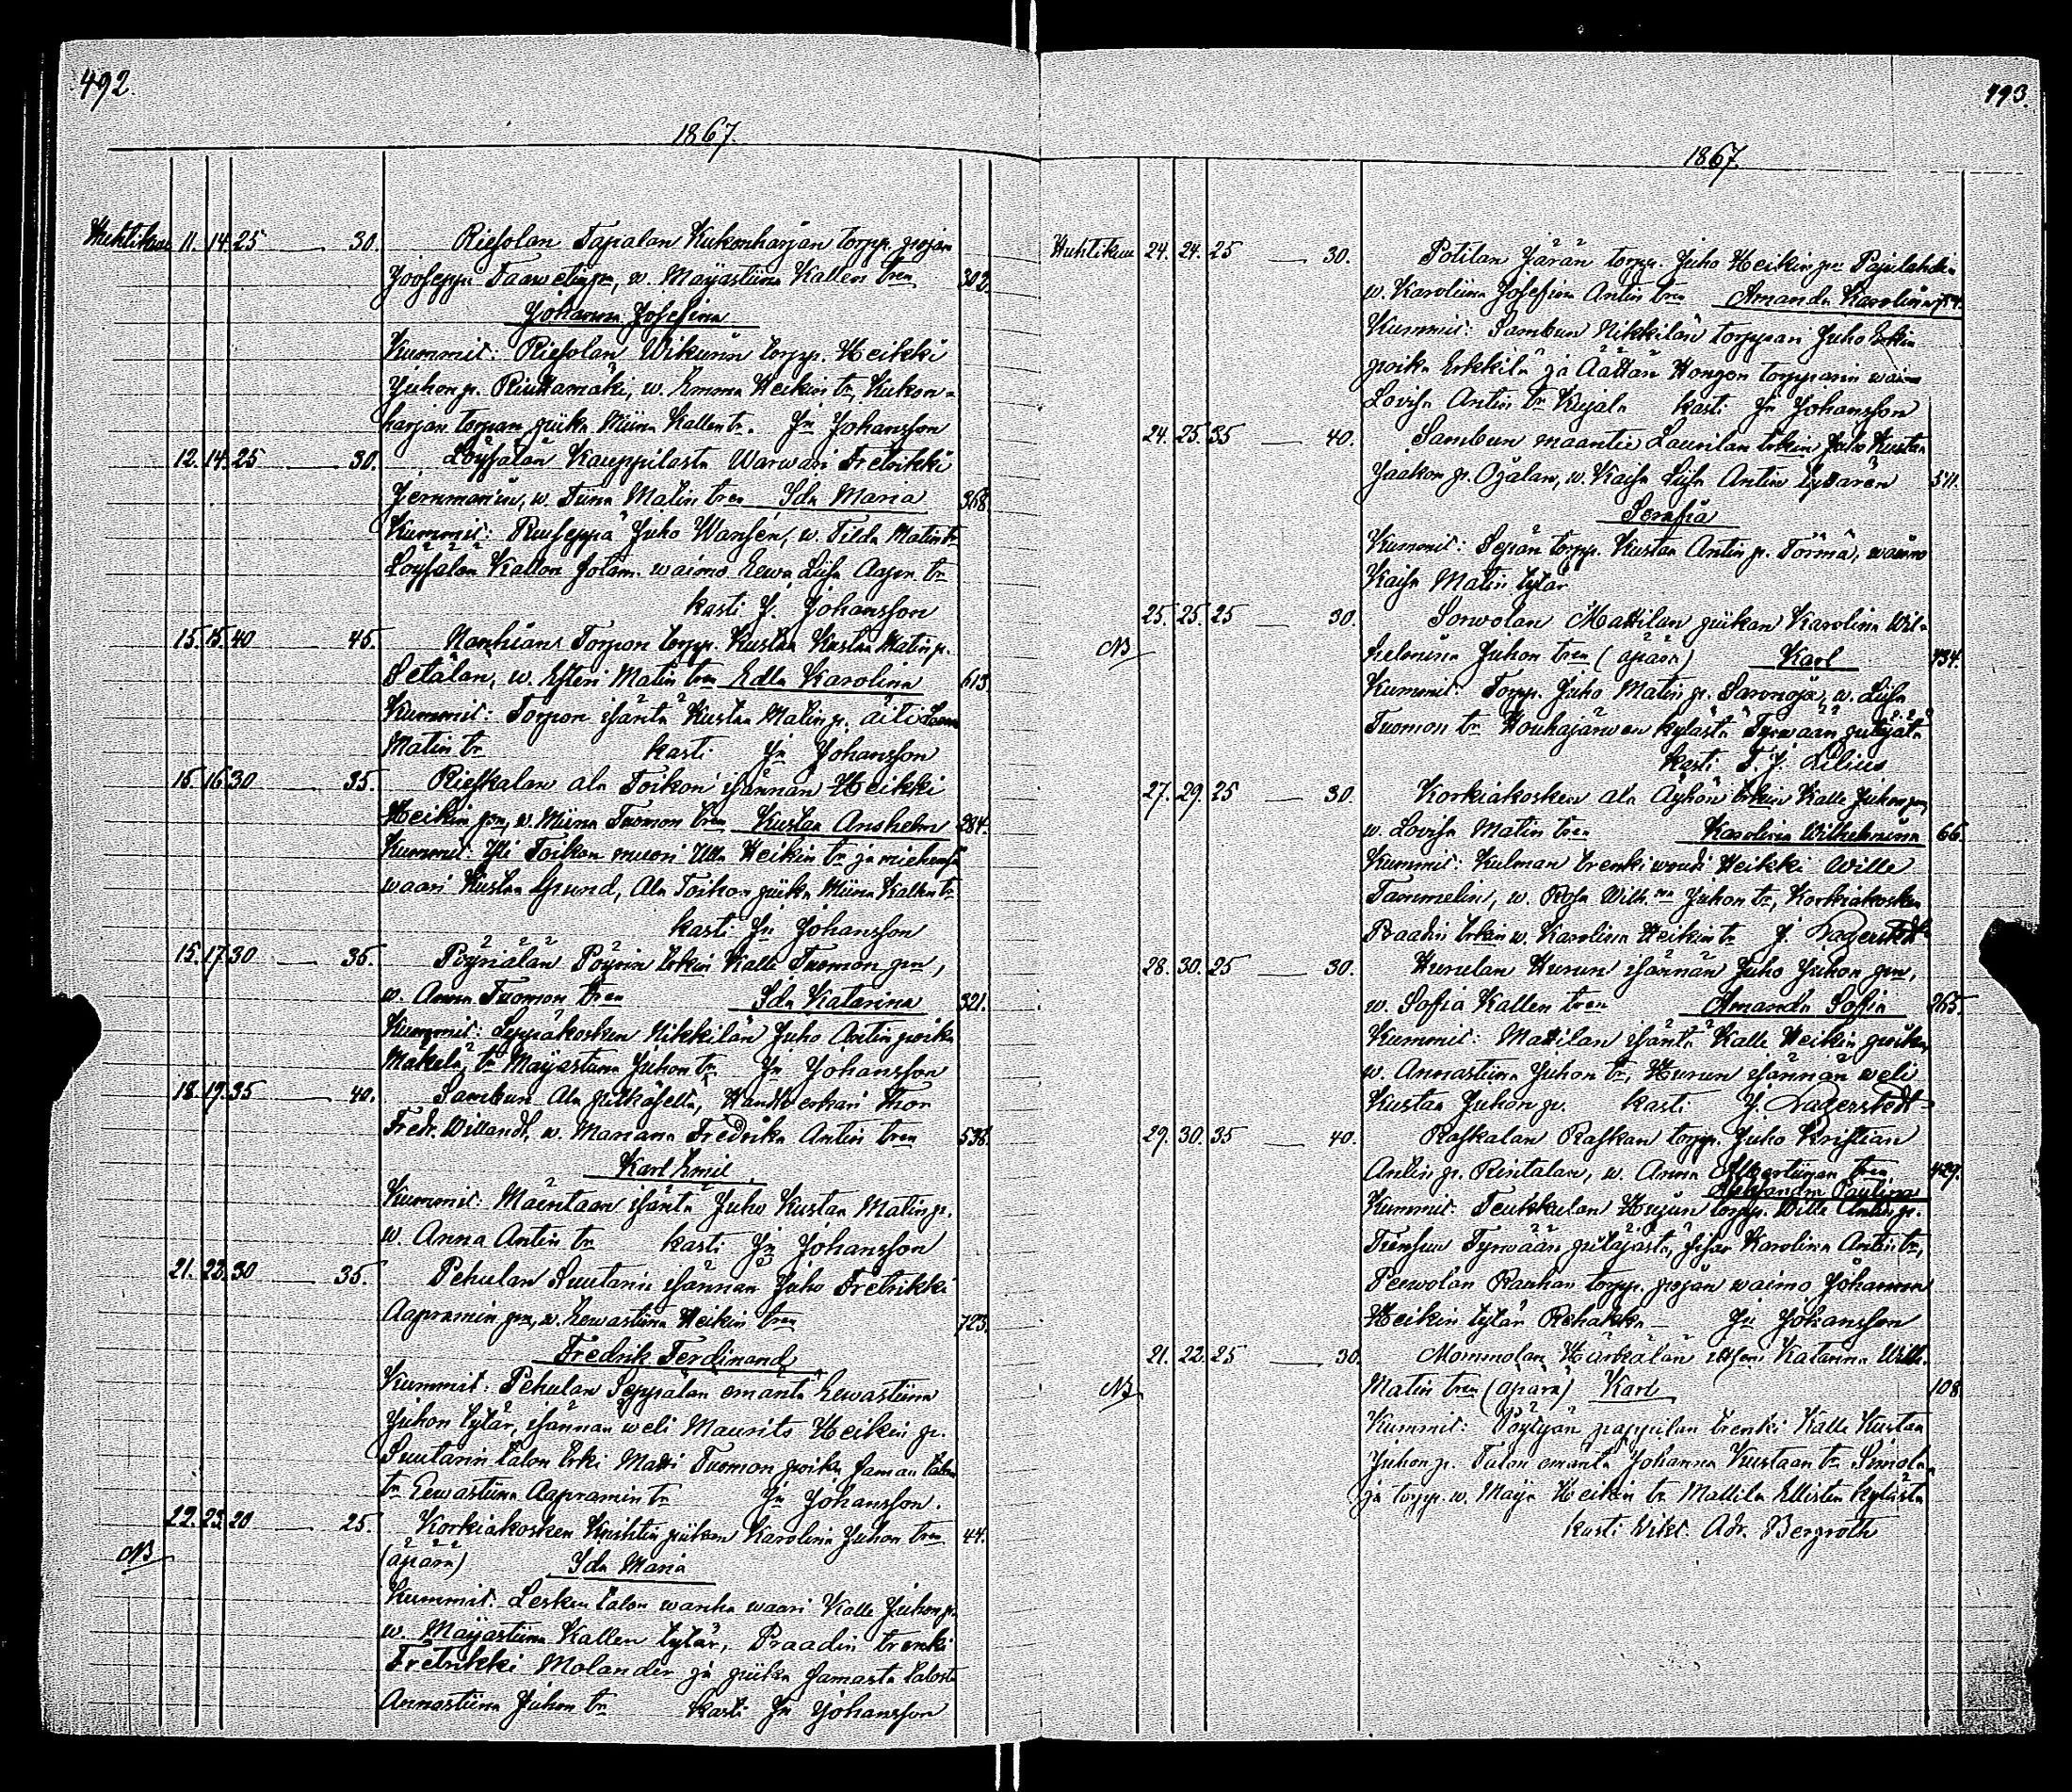 492.
1867.
Huhtikuu 11. 14. 25 — 30. Riesolan Tapalan Kukonharjan torpp. pojan
Jooseppi Taawetin pn, w. Maijastiina Kallen tren 302.
Johanna Josefina
Kummit: Riesolan Wikunin torpp. Heikki
Juhon p. Riuttamäki, w. Emma Heikin tr, Kukon-
harjan torpan piika Miina Kallen tr. Jn Johansson
12. 14. 25 — 30. Löysälän Kauppilasta Warwari Fretrikki
w. Tiina Matin tren Ida Maria 368.
Kummit: Ruuseppä Juho Wansén, w. Tilda Matin tr
Löysälän Kallon sotam. waimo Eewa Liisa Aapr. tr
kasti J. Johansson
15. 15. 40 45. Nanhians Torpon torpp. Kustaa Kustaa Matin p.
Setälän, w. Esteri Matin tren Edla Karolina 613.
Kummit: Torpon isäntä Kustaa Matin p. äiti
Matin tr kasti Jn Johansson
15. 16. 30 — 35. Rieskalan ala Toikon isännän Heikki
Heikin pn, w. Miina Tuomon tren Kustaa Anshelm 284.
Kummit: Yli Toikon muori Ulla Heikin tr ja miehensä
waari Kustaa Grund, Ala Toikon piika Miina Kallen tr
kasti Jn Johansson
15. 17. 30 — 35. Pöyriälän Pöyrin trkin Kalle Tuomon pn,
w. Anna Tuomon tren Ida Katarina 321.
Kummit: Leppäkosken Nikkilän Juho Antin poika
Mäkelä, tr Maijastiina Juhon tr Jn Johansson
18. 19. 35 — 40. Sambun Ala pitkäsellä, Handtverkari Thor
Fredr. Willandt, w. Mariana Fredrika Antin tren 538.
Karl Emil
Kummit: Mäentaan isäntä Juho Kustaa Matin p.
w. Anna Antin tr kasti Jn Johansson
21. 23. 30 — 35. Pehulan Suutarin isännän Juho Fretrikki
Aapramin pn, w. Eewastiina Heikin tren 723.
Fredrik Ferdinand
Kummit: Pehulan Seppälän emäntä Eewastiina
Juhon tytär, isännän weli Maurits Heikin p.
Suutarin talon trki Matti Tuomon poika saman talon
tr Eewastiina Aapramin tr Jn Johansson.
22. 23. 20 — 25. Korkiakosken Krihtin piikan Karolina Juhon tren 44.
NB (äpärä) Ida Maria
Kummit: Lesken talon wanha waari Kalle Juhon p.
w. Maijastiina Kallen tytär, Praadin trenki
Fretrikki Molander ja piika samasta talosta
Annastiina Juhon tr kasti Jn Johansson
493.
1867.
Huhtikuu 24. 24. 25 — 30. Potilan Järän torpp. Juho Heikin pn Pajulahden
w. Karoliina Josefina Antin tren Amanda Karolina
Kummit: Sambun Nikkilän torppari Juho Erkin
poika Erkkilä ja Äättän Hongon torpparin waimo
Lovisa Antin tr Kujala kasti Jn Johansson
24. 25. 35 — 40. Sambun maantie Laurilan trkin Juho Kustaa
Jaakon p. Ojalan, w. Kaisa Liisa Antin tytären 511.
Serafia
Kummit: Sepän torpp. Kustaa Antin p. Törmä, waimo
Kaisa Matin tytär
25. 25. 25 — 30. Sorwolan Mattilan piikan Karolina Wil-
NB helmina Juhon tren (äpärä) Karl 434.
Kummit: Torpp. Juho Matin p. Saronoja, w. Liisa
Tuomon tr Houhajärwen kylästä Tyrwään pitäjätä
kasti F. J. Lilius
27. 29. 25 — 30. Korkiakosken ala Äyhön trkin Kalle Juhon pn,
w. Lovisa Matin tren Karolina Wilhelmina 66.
Kummit: Kulman trenki woudi Heikki Wille
Tammelin, w. Rosa Wilh.na Juhon tr, Korkiakosken
Praadin trkin w. Karolina Heikin tr J. Lagerstedt
28. 30. 25 — 30. Hurulan Hurun isännän Juho Juhon pn,
w. Sofia Kallen tren Amanda Sofia 265.
Kummit: Mattilan isäntä Kalle Heikin poika,
w. Annastiina Juhon tr, Hurun isännän weli
Kustaa Juhon p. kasti J. Lagerstedt
29. 30. 35 — 40. Raskalan Raskan torpp. Juho Kristian
Antin p. Rintalan, w. Anna Albertiinan tren 429.
Aleksandra Paulina
Kummit: Teukkulan Hujun torpp. Wille Antin p.
Tyrwään pitäjästä, sisar Karolina Antin tr,
Peewolan Rauhan torpp. pojan waimo Johanna
Heikin tytär Rohakka — Jn Johansson
21. 22. 25 — 30. Mommolan Härkälän itsen. Katarina Wilh.
NB Matin tren (äpärä) Karl 108
Kummit: Pöytyän pappilan trenki Kalle Kustaa
Juhon p. Talon emäntä Johanna Kustaan tr Simola
ja torpp. w. Maija Heikin tr Mattila Ellisten kylästä
kasti Wikt. Adr. Bergroth